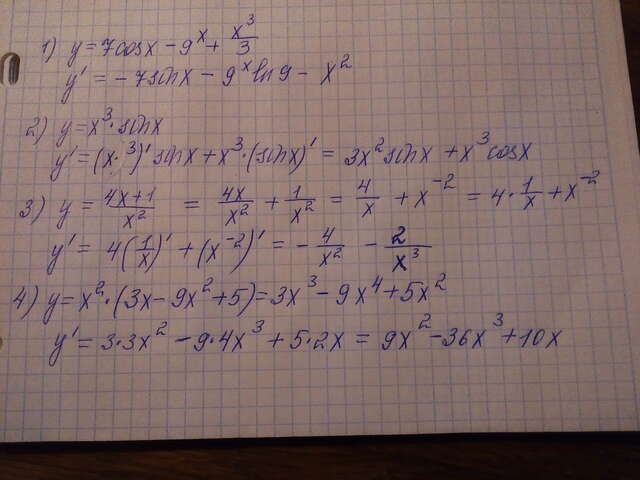 1) y = 7cosx - 9^x + x^3/3
y' = -7sinx - 9^x ln9 - x^2
2) y = x^3 · sinx
y' = (x·^3)' sinx + x^3 · (sinx)' = 3x^2 sinx + x^3 cosx
3) y = (4x+1)/x^2 = 4x/x^2 + 1/x^2 = 4/x + x^-2 = 4 · 1/x + x^-2
y' = 4(1/x)' + (x^-2)' = - 4/x^2 - 2/x^3
4) y = x^2 · (3x - 9x^2 + 5) = 3x^3 - 9x^4 + 5x^2
y' = 3·3x^2 - 9·4x^3 + 5·2x = 9x^2 - 36x^3 + 10x